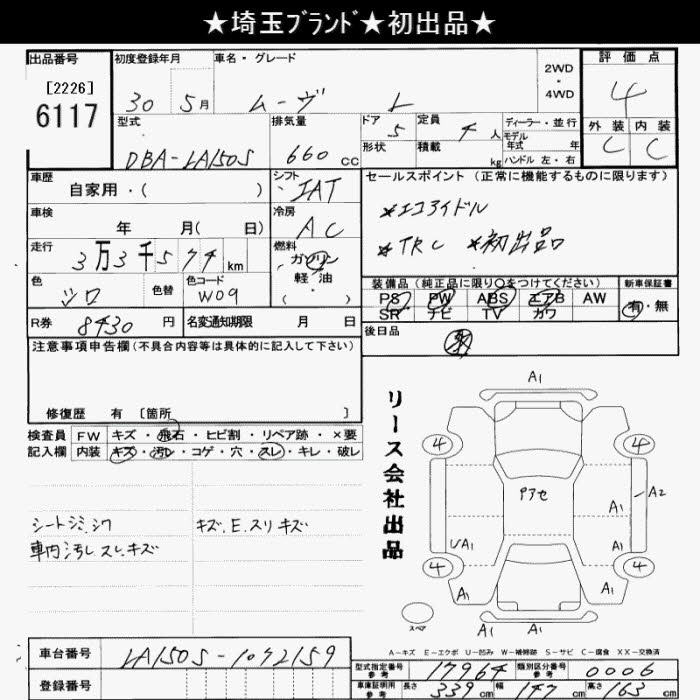 ★埼玉ﾌﾞﾗﾝﾄﾞ★初出品★
出品番号 初度登録年月 車名・グレード 2WD・4WD 評価点
[2226]
6117
30 5月 ムーヴ L 4
型式 排気量 ドア 5 定員 4人 ディーラー・並行 外装 内装
DBA-LA150S 660cc 形状 積載 kg モデル年式 年 C C
ハンドル 左・右
車歴 シフト セールスポイント (正常に機能するものに限ります)
自家用・( ) IAT
*エコアイドル
車検 冷房
年 月( 日) AC
*TRC *初出品
走行 燃料
3万3千574km ガソリン
軽・油
( ・ )
色 色替 色コード 装備品(純正品に限り〇をつけてください) 新車保証書
シロ W09 PS PW ABS エアB AW 有・無
SR ナビ TV カワ
R券 8430円 名変通知期限 月 日 後日品
注意事項申告欄(不具合内容等は具体的に記入して下さい)
修復歴 有 [箇所 ]
検査員 FW キズ・飛石・ヒビ割・リペア跡・×要
記入欄 内装 キズ・汚レ・コゲ・穴・スレ・キレ・破レ
シートシミ.シワ キズ.E.スリキズ
車内汚レ スレ.キズ
リース会社出品
A1
4 4
Pアセ A2
A1
UA1 A1
4 4
A1 A1
A1 A1
スペア
A-キズ E-エクボ U-凹み W-補修跡 S-サビ C-腐食 XX-交換済
車台番号 LA150S-1072159
登録番号
型式指定番号 参考 17964 類別区分番号 参考 0006
車庫証明用 参考 長さ 339cm 幅 147cm 高さ 163cm